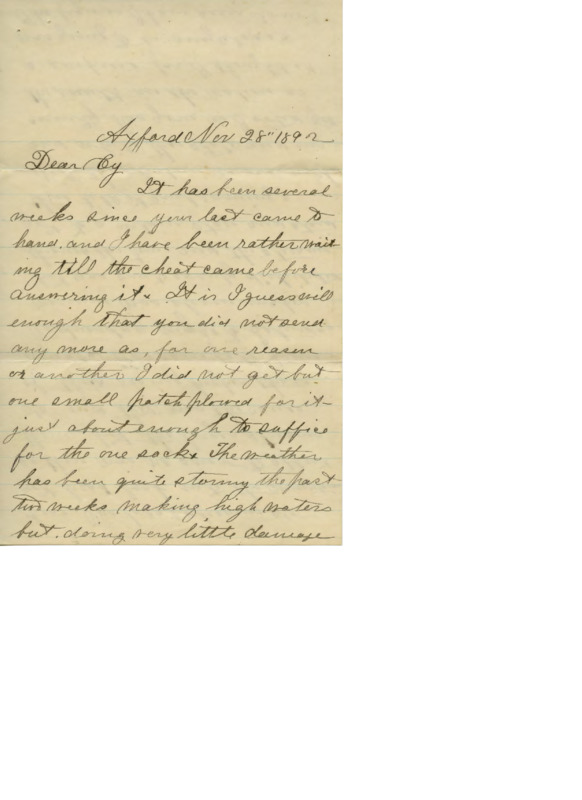 Axford Nov 28" 1892
Dear Cy
It has been several
weeks since your last came to
hand. and I have been rather wait
ing till the cheat came before
answering it. It is I guess well
enough that you did not send
any more as, for one reason
or another I did not get but
one small patch plowed for it-
just about enough to suffice
for the one sock. The weather
has been quite stormy the past
two weeks making high waters
but. doing very little damage